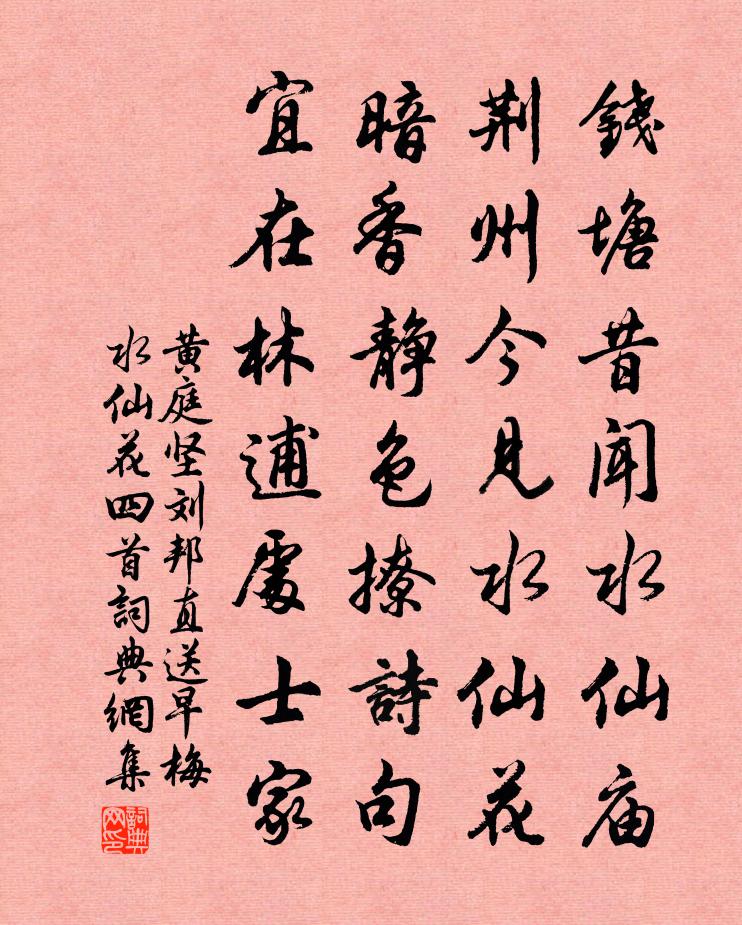 錢塘昔聞水仙庙
荆州今見水仙花
暗香靜色撩詩句
宜在林逋處士家
黄庭坚刘邦直送早梅
水仙花四首詞典網集
詞典网印